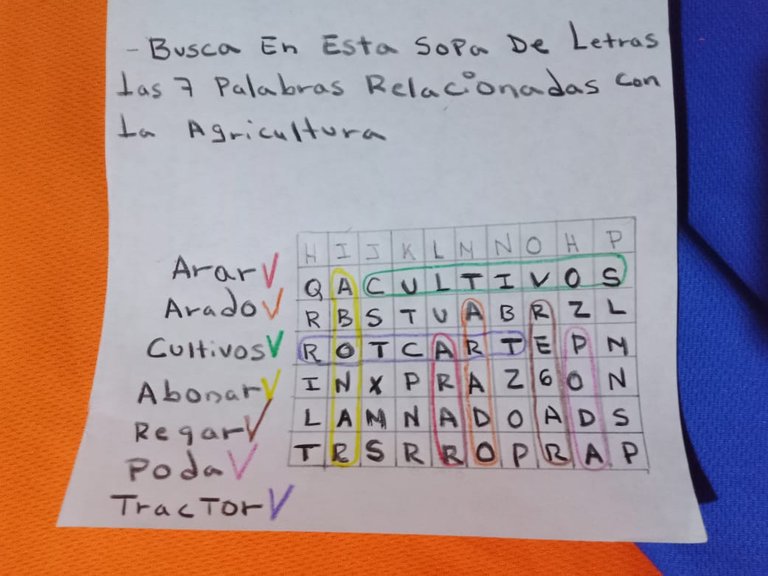 - Busca En Esta Sopa De Letras
Las 7 Palabras Relacionadas con
La Agricultura
H I J K L M N O H P
Arar Q A C U L T I V O S
Arado R B S T U A B R Z L
Cultivos R O T C A R T E P M
Abonar I N X P R A Z G O N
Regar L A M N A D O A D S
Poda T R S R R O P R A P
Tractor